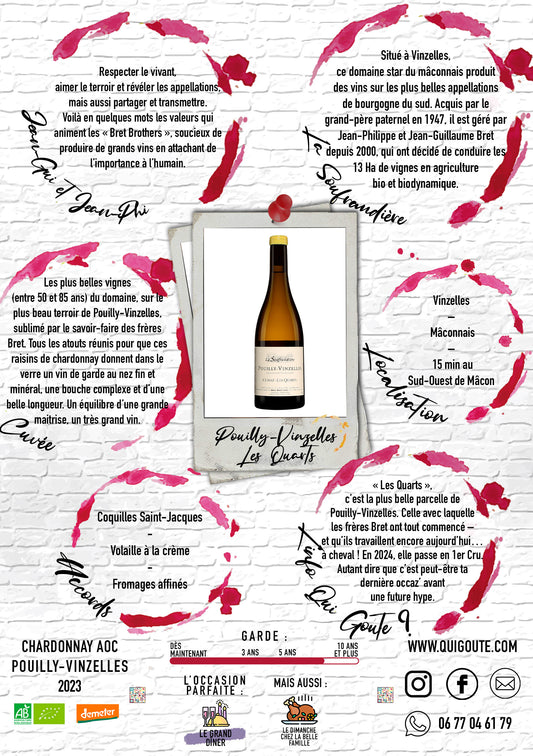 Respecter le vivant,
aimer le terroir et révéler les appellations,
mais aussi partager et transmettre.
Voilà en quelques mots les valeurs qui
animent les « Bret Brothers », soucieux de
produire de grands vins en attachant de
l'importance à l'humain.
Jean-Gui et Jean-Phi
Situé à Vinzelles,
ce domaine star du mâconnais produit
des vins sur les plus belles appellations
de bourgogne du sud. Acquis par le
grand-père paternel en 1947, il est géré par
Jean-Philippe et Jean-Guillaume Bret
depuis 2000, qui ont décidé de conduire les
13 Ha de vignes en agriculture
bio et biodynamique.
La Soufrandière
Les plus belles vignes
(entre 50 et 85 ans) du domaine, sur le
plus beau terroir de Pouilly-Vinzelles,
sublimé par le savoir-faire des frères
Bret. Tous les atouts réunis pour que ces
raisins de chardonnay donnent dans le
verre un vin de garde au nez fin et
minéral, une bouche complexe et d'une
belle longueur. Un équilibre d'une grande
maitrise, un très grand vin.
Cuvée
La Soufrandière
POUILLY-VINZELLES
CLIMAT « LES QUARTS »
Pouilly-Vinzelles
Les Quarts
Vinzelles
–
Mâconnais
–
15 min au
Sud-Ouest de Mâcon
Localisation
Coquilles Saint-Jacques
–
Volaille à la crème
–
Fromages affinés
Accords
« Les Quarts »,
c'est la plus belle parcelle de
Pouilly-Vinzelles. Celle avec laquelle
les frères Bret ont tout commencé –
et qu'ils travaillent encore aujourd'hui…
à cheval ! En 2024, elle passe en 1er Cru.
Autant dire que c'est peut-être ta
dernière occaz' avant
une future hype.
L'info Qui Goûte ?
CHARDONNAY AOC
POUILLY-VINZELLES
2023
AB
demeter
GARDE :
DÈS
MAINTENANT
3 ANS
5 ANS
10 ANS
ET PLUS
L'OCCASION
PARFAITE :
LE GRAND
DÎNER
MAIS AUSSI :
LE DIMANCHE
CHEZ LA BELLE
FAMILLE
WWW.QUIGOUTE.COM
06 77 04 61 79